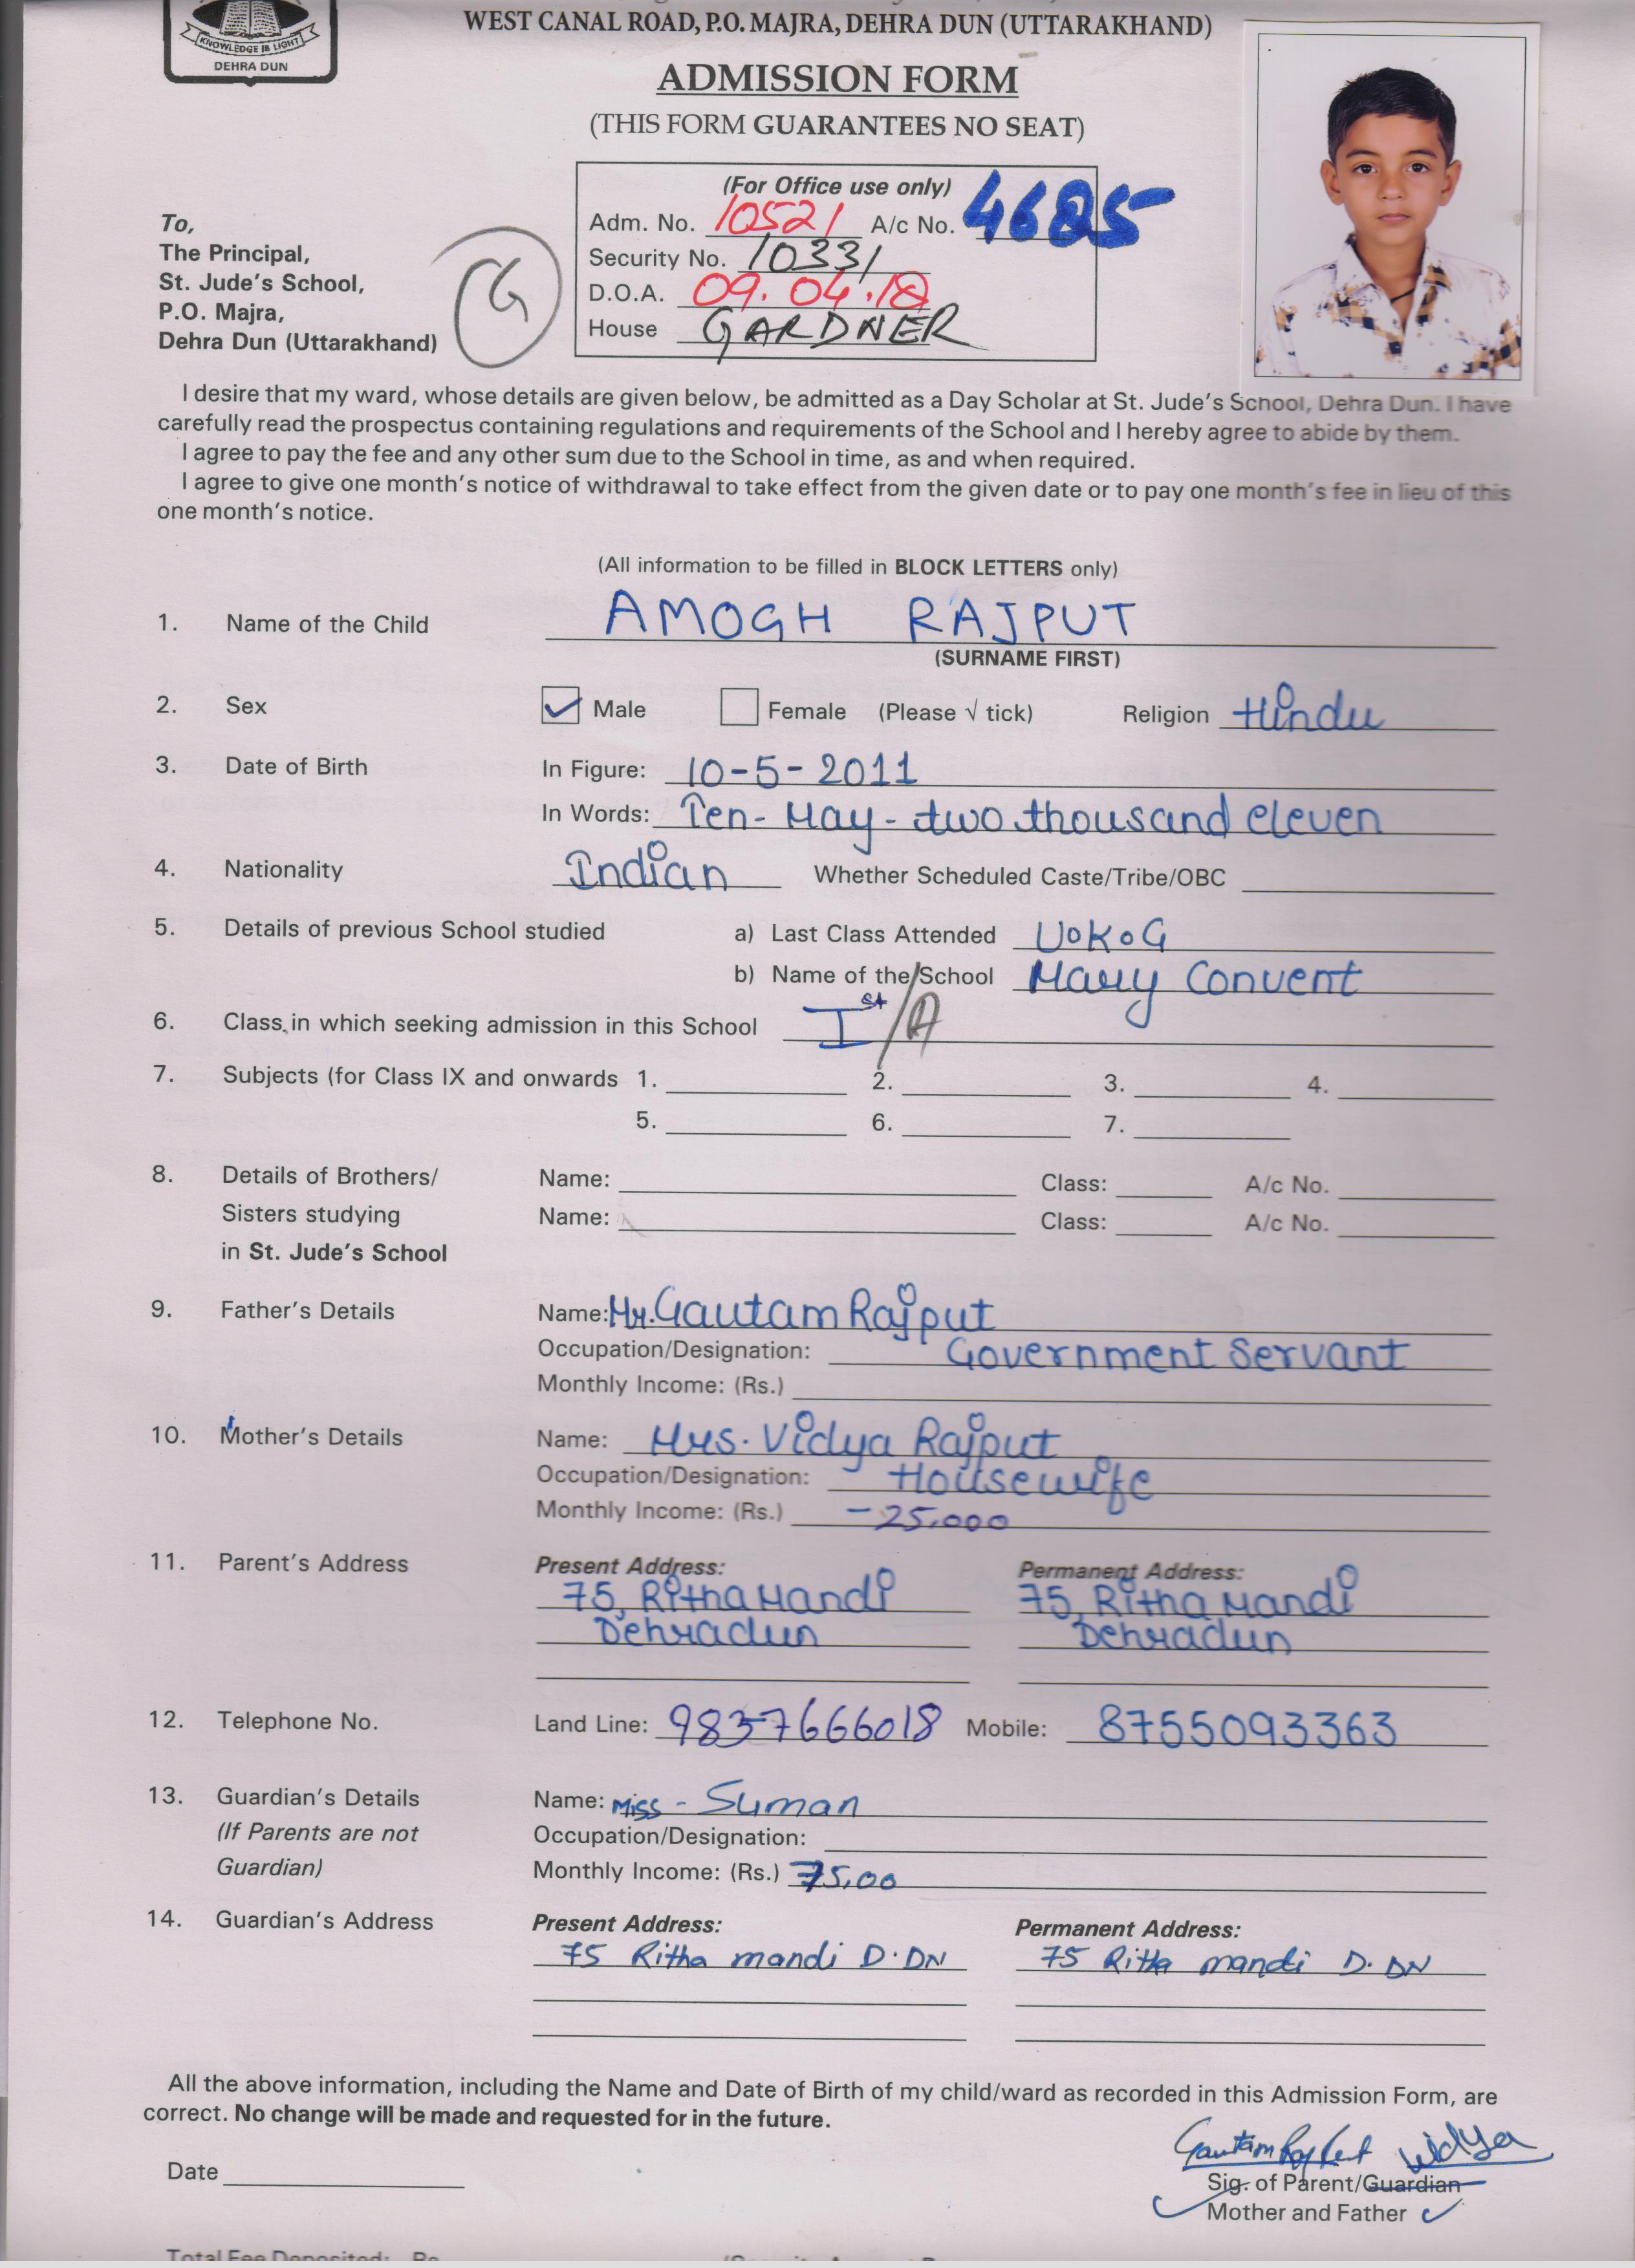 KNOWLEDGE IS LIGHT
DEHRA DUN
WEST CANAL ROAD, P.O. MAJRA, DEHRA DUN (UTTARAKHAND)
ADMISSION FORM
(THIS FORM GUARANTEES NO SEAT)
(For Office use only)
Adm. No. 10521 A/c No. 4685
Security No. 10331
D.O.A. 09.04.18
House GARDNER
To,
The Principal,
St. Jude's School,
P.O. Majra,
Dehra Dun (Uttarakhand)
G
I desire that my ward, whose details are given below, be admitted as a Day Scholar at St. Jude's School, Dehra Dun. I have
carefully read the prospectus containing regulations and requirements of the School and I hereby agree to abide by them.
I agree to pay the fee and any other sum due to the School in time, as and when required.
I agree to give one month's notice of withdrawal to take effect from the given date or to pay one month's fee in lieu of this
one month's notice.
(All information to be filled in BLOCK LETTERS only)
1. Name of the Child AMOGH RAJPUT
(SURNAME FIRST)
2. Sex Male Female (Please √ tick) Religion Hindu
3. Date of Birth In Figure: 10-5-2011
In Words: Ten-May-two thousand eleven
4. Nationality Indian Whether Scheduled Caste/Tribe/OBC
5. Details of previous School studied a) Last Class Attended U.K.G
b) Name of the School Mary Convent
6. Class in which seeking admission in this School Ist/A
7. Subjects (for Class IX and onwards 1. 2. 3. 4.
5. 6. 7.
8. Details of Brothers/ Name: Class: A/c No.
Sisters studying Name: Class: A/c No.
in St. Jude's School
9. Father's Details Name: Mr. Gautam Rajput
Occupation/Designation: Government Servant
Monthly Income: (Rs.)
10. Mother's Details Name: Mrs. Vidya Rajput
Occupation/Designation: Housewife
Monthly Income: (Rs.) -25,000
11. Parent's Address Present Address: Permanent Address:
75, Ritha Mandi 75, Ritha Mandi
Dehradun Dehradun
12. Telephone No. Land Line: 9837666018 Mobile: 8755093363
13. Guardian's Details Name: Miss - Suman
(If Parents are not Occupation/Designation:
Guardian) Monthly Income: (Rs.) 75,00
14. Guardian's Address Present Address: Permanent Address:
75 Ritha mandi D.DN 75 Ritha mandi D.DN
All the above information, including the Name and Date of Birth of my child/ward as recorded in this Admission Form, are
correct. No change will be made and requested for in the future.
Gautam Rajput Vidya
Date Sig. of Parent/Guardian
Mother and Father
Total Fee Deposited: Rs.